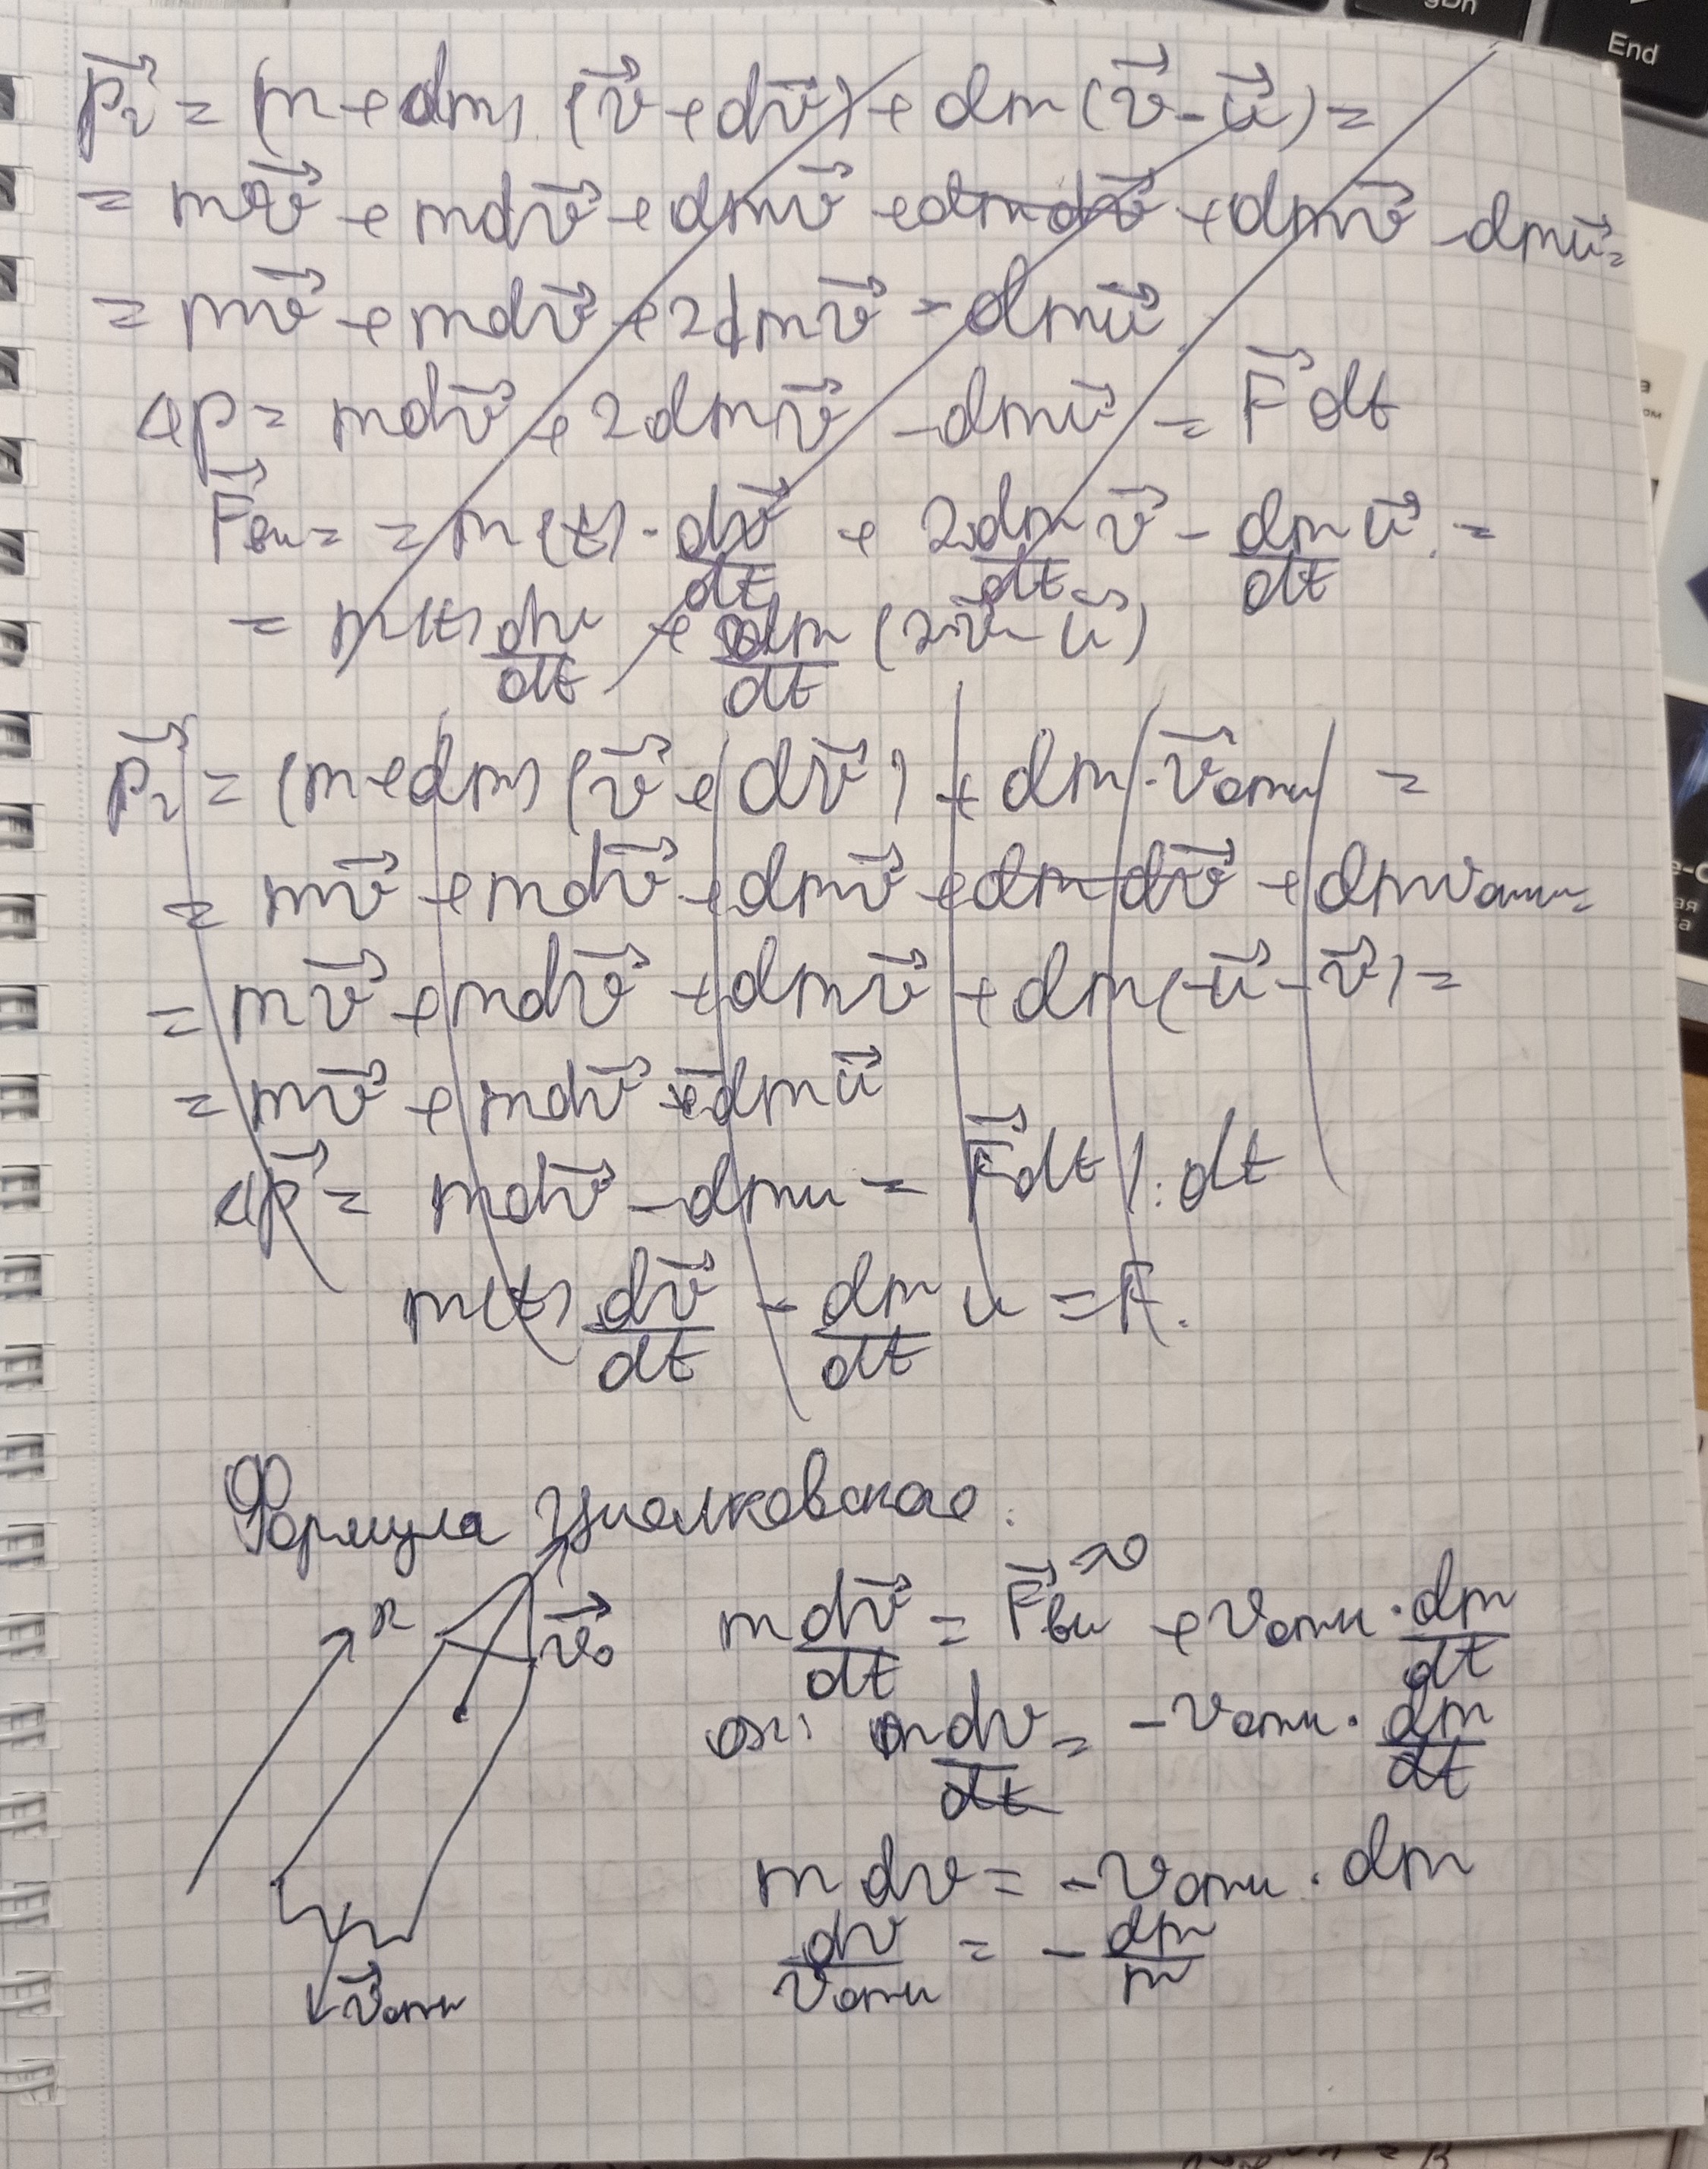 End
p⃗₂ = (m + dm) (v⃗ + dv⃗) + dm (v⃗ - u⃗) =
= mv⃗ + mdv⃗ + dmv⃗ + dmdv⃗ + dmv⃗ - dmu⃗ =
= mv⃗ + mdv⃗ + 2dmv⃗ - dmu⃗
Δp = mdv⃗ + 2dmv⃗ - dmu⃗ = F⃗dt
F⃗вн = = m(t) · dv⃗/dt + 2dm/dt v⃗ - dm/dt u⃗ =
= m(t) dv/dt + dm/dt (2v⃗ - u⃗)
p⃗₂ = (m + dm) (v⃗ + dv⃗) + dm · v⃗отн =
= mv⃗ + mdv⃗ + dmv⃗ + dmdv⃗ + dmvотн =
= mv⃗ + mdv⃗ + dmv⃗ + dm(-u⃗ - v⃗) =
= mv⃗ + mdv⃗ - dmu⃗
Δp⃗ = mdv⃗ - dmu = F⃗dt | : dt
m(t) dv⃗/dt - dm/dt u = F.
Формула Циолковского:
x
v⃗₀
v⃗отн
m dv⃗/dt = F⃗вн + vотн · dm/dt
=0
ox: m dv/dt = - vотн · dm/dt
m dv = - vотн · dm
dv/vотн = - dm/m